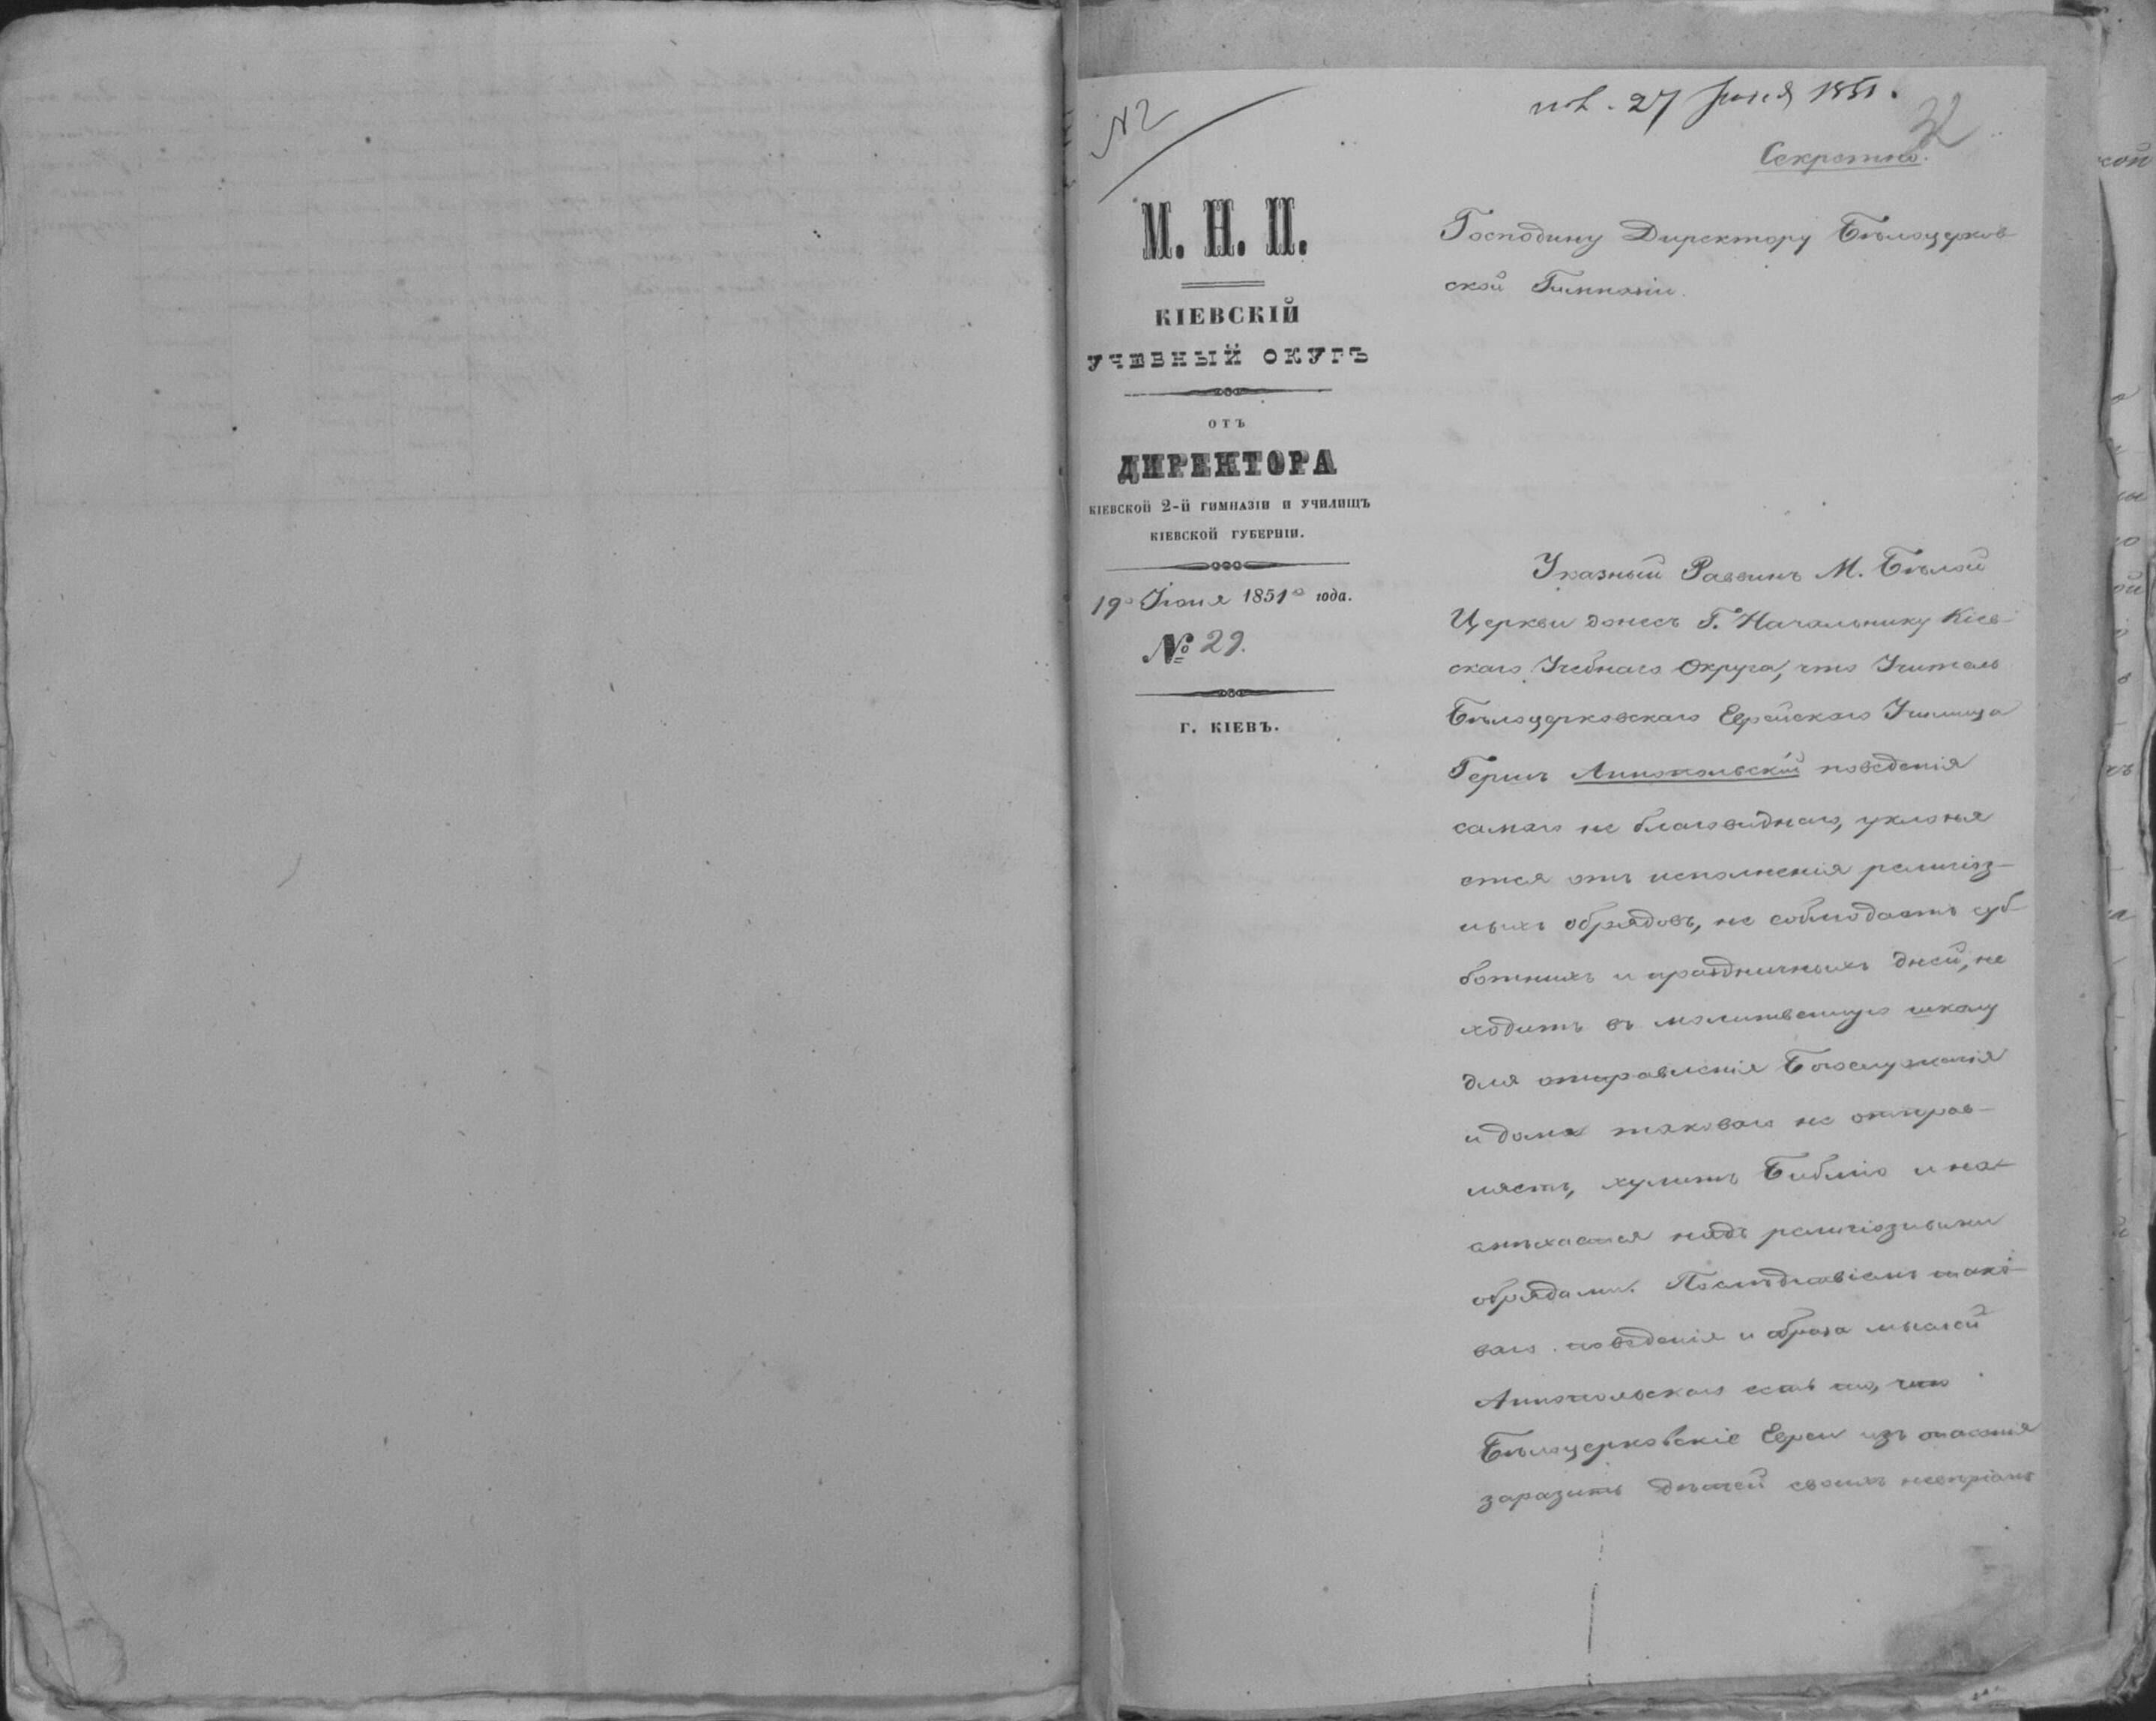 № 2
пол. 27 Іюня 1851.
32
Секретно.
М. Н. П.
КІЕВСКІЙ
УЧЕБНЫЙ ОКУГЪ
ОТЪ
ДИРЕКТОРА
КІЕВСКОЙ 2-Й ГИМНАЗІИ И УЧИЛИЩЪ
КІЕВСКОЙ ГУБЕРНІИ.
19го Іюня 1851го года.
№ 29.
Г. КІЕВЪ.
Господину Директору Бѣлоцерков-
ской Гимназіи.
Указный Раввинъ М. Бѣлой
Церкви донесъ Г. Начальнику Кіев-
скаго Учебнаго Округа, что Учитель
Бѣлоцерковскаго Еврейскаго Училища
Гершъ Аннопольскій поведенія
самаго не благовиднаго, уклоня
ется отъ исполненія религіоз-
ныхъ обрядовъ, не соблюдаетъ суб-
ботнихъ и праздничныхъ дней, не
ходитъ въ молитвенную школу
для отправленія Богослуженія
и дома таковаго не отправ-
ляетъ, хулитъ Библію и на-
смѣхается надъ религіозными
обрядами. Послѣдствіемъ тако-
ваго поведенія и образа мыслей
Аннопольскаго есть то, что
Бѣлоцерковскіе Евреи изъ опасенія
заразить дѣтей своихъ непріят